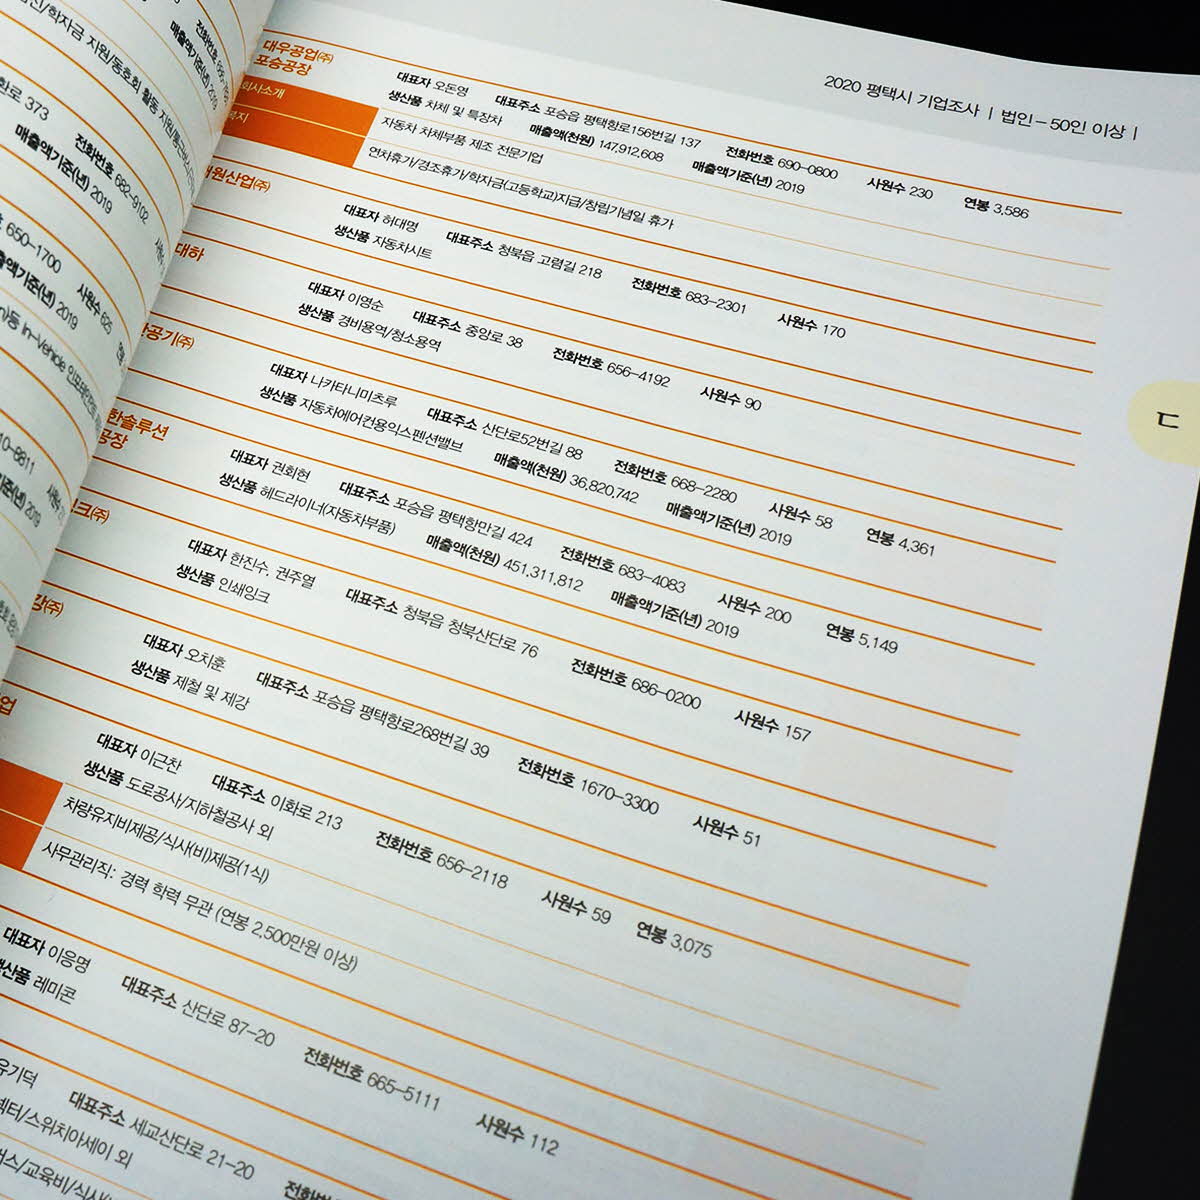 2020 평택시 기업조사 | 법인 - 50인 이상 |
ㄷ
학자금 지원/동호회 활동 지원/통근버스
373 전화번호 682-9102
매출액기준(년) 2019
650-1700 사원수 625
매출액기준(년) 2019
In-Vehicle
대우공업(주)
포승공장
대표자 오돈영 대표주소 포승읍 평택항로156번길 137 전화번호 690-0800 사원수 230 연봉 3,586
생산품 차체 및 특장차 매출액(천원) 147,912,608 매출액기준(년) 2019
회사소개 자동차 차체부품 제조 전문기업
복지 연차휴가/경조휴가/학자금(고등학교)지급/창립기념일 휴가
원산업(주)
대표자 허대명 대표주소 청북읍 고렴길 218 전화번호 683-2301 사원수 170
생산품 자동차시트
대하
대표자 이영순 대표주소 중앙로 38 전화번호 656-4192 사원수 90
생산품 경비용역/청소용역
공기(주)
대표자 나카타니미츠루 대표주소 산단로52번길 88 전화번호 668-2280 사원수 58 연봉 4,361
생산품 자동차에어컨용익스펜션밸브 매출액(천원) 36,820,742 매출액기준(년) 2019
한솔루션
공장
대표자 권회현 대표주소 포승읍 평택항만길 424 전화번호 683-4083 사원수 200 연봉 5,149
생산품 헤드라이너(자동차부품) 매출액(천원) 451,311,812 매출액기준(년) 2019
잉크(주)
대표자 한진수, 권주열 대표주소 청북읍 청북산단로 76 전화번호 686-0200 사원수 157
생산품 인쇄잉크
강(주)
대표자 오치훈 대표주소 포승읍 평택항로268번길 39 전화번호 1670-3300 사원수 51
생산품 제철 및 제강
업
대표자 이근찬 대표주소 이화로 213 전화번호 656-2118 사원수 59 연봉 3,075
생산품 도로공사/지하철공사 외
차량유지비제공/식사(비)제공(1식)
사무관리직: 경력 학력 무관 (연봉 2,500만원 이상)
대표자 이응명 대표주소 산단로 87-20 전화번호 665-5111 사원수 112
생산품 레미콘
유기덕 대표주소 세교산단로 21-20 전화번호
넥터/스위치아세이 외
버스/교육비/식사